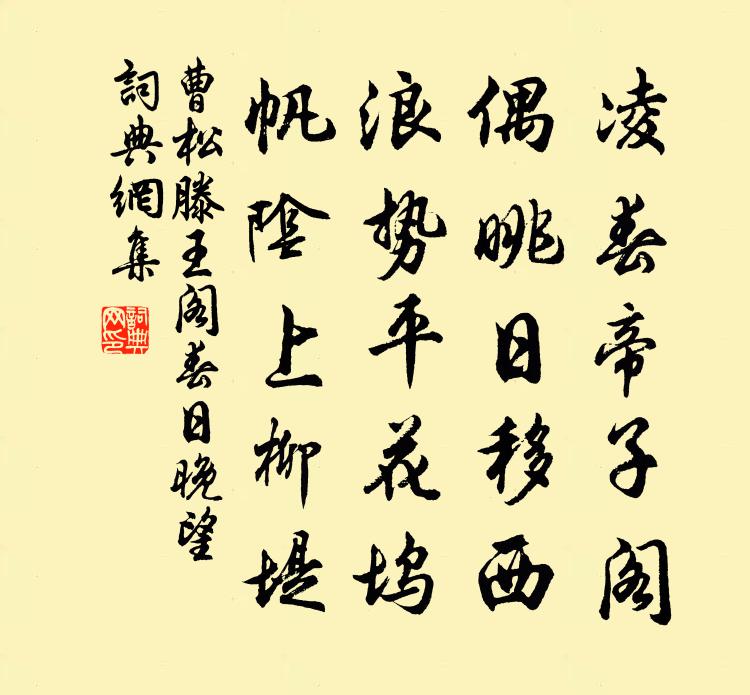 凌春帝子阁
偶眺日移西
浪势平花坞
帆陰上柳堤
曹松滕王阁春日晚望
詞典網集
詞典
网印